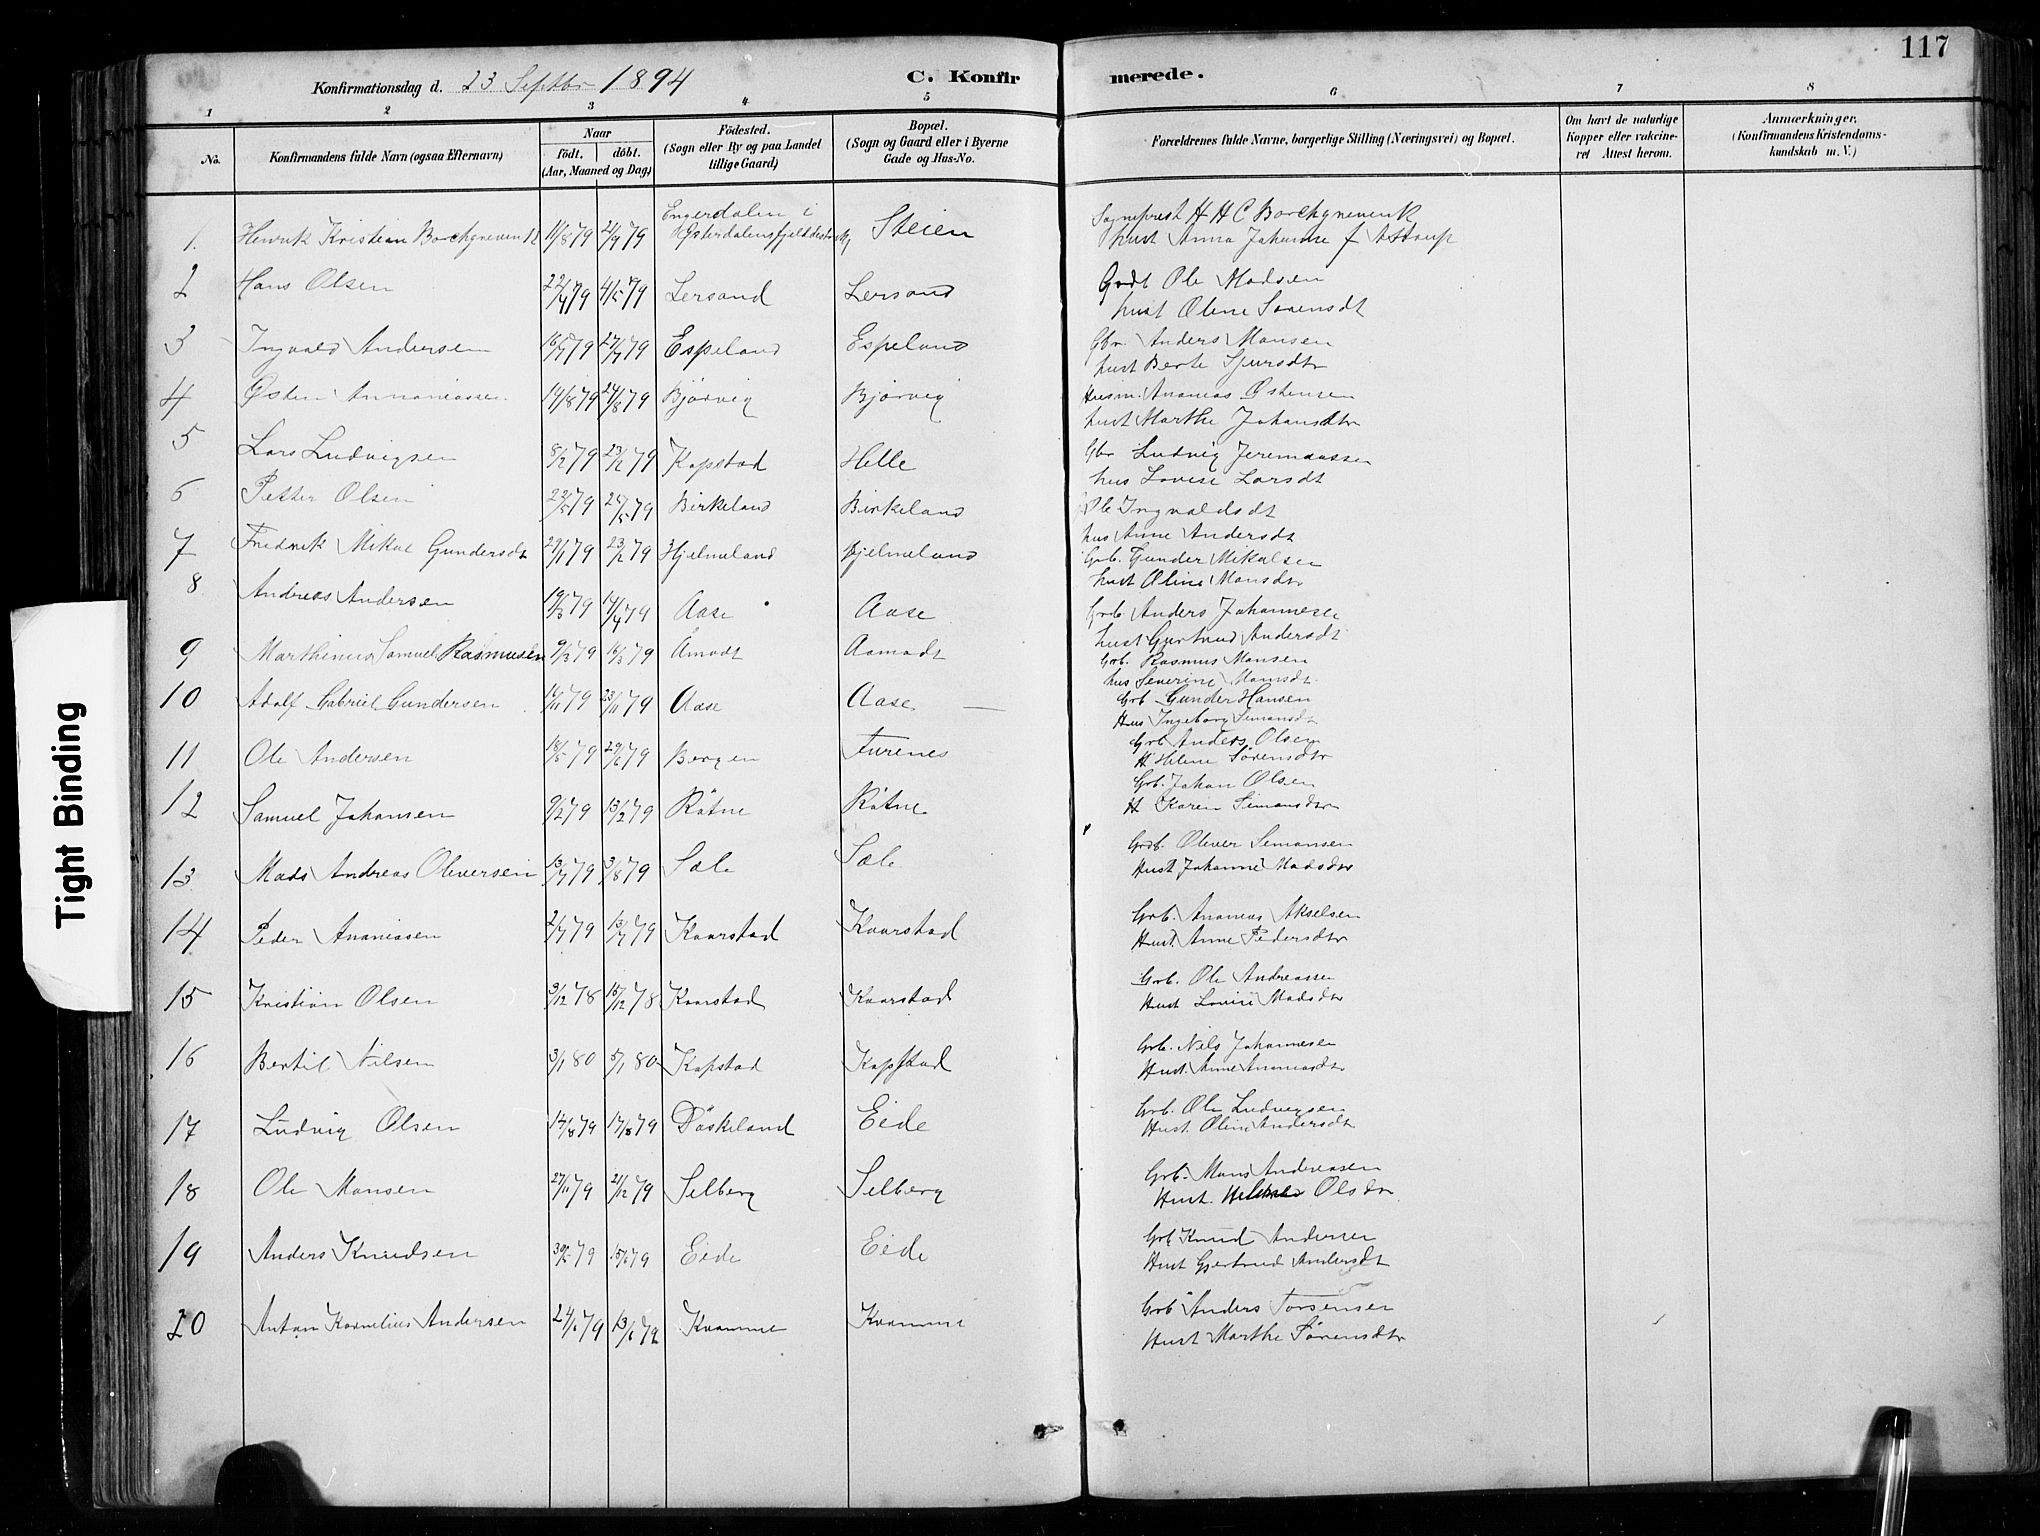 117
Konfirmationsdag d. 23 Septbr 1894
C. Konfirmerede.
1 2 3 4 5 6 7 8
No.
Konfirmandens fulde Navn (ogsaa Efternavn)
Naar
født. døbt.
(Aar, Maaned og Dag)
Födested.
(Sogn eller By og paa Landet
tillige Gaard)
Bopæl.
(Sogn og Gaard eller i Byerne
Gade og Hus-No.
Forældrenes fulde Navne, borgerlige Stilling (Næringsvei) og Bopæl.
Om havt de naturlige
Kopper eller vakcine-
ret Attest herom.
Anmærkninger,
(Konfirmandens Kristendoms-
kundskab m. V.)
1. Henrik Kristian Borchgrevenk 11/8 79 21/9 79 Engerdalen i Østerdalens Steien Sogneprest H H C Borchgrevenk
hust Anna Johanne f Astrup
2 Hans Olsen 22/4 79 4/5 79 Lersand Lersand Ole Madsen
hust Oline Sørensdt
3 Ingvald Andersen 16/7 79 27/7 79 Espeland Espeland Gbr. Anders Monsen
hust Berte Sjursdtr
4 Østen Annaniassen 14/8 79 24/8 79 Bjørvig Bjørvig Husm. Ananias Østensen
hust Marthe Johansdtr
5 Lars Ludvigsen 8/2 79 23/2 79 Kapstad Helle Gbr Ludvig Jeremiassen
hus Lovise Larsdt
6 Petter Olsen 22/5 79 Birkeland Birkeland Ole Ingvaldsdt
hus Anne Andersdt
7 Fredrik Mikal Gundersdt 29/1 79 23/2 79 Hjelmeland Hjelmeland Grb. Gunder Mikalsen
hust Oline Monsdtr
8 Andreas Andersen 19/3 79 14/4 79 Aase Aase Grb Anders Johannesen
hust Gjertrud Andersdt
9 Marthinus Samuel Rasmusen 9/3 79 16/3 79 Åmodt Aamodt Grb. Rasmus Monsen
hus Severine Monsdt.
10 Adolf Gabriel Gundersen 16/11 79 23/11 79 Aase Aase Grb Gunder Hansen
Hus Ingeborg Simonsdt
11 Ole Andersen 18/5 79 29/6 79 Bergen Furenes Grb Anders Olsen
H Helene Sørensdtr
12 Samuel Johansen 9/2 79 Råtne Råtne Grb. Johan Olsen
H Karen Simonsdtr
13 Mads Andreas Oliversen 13/7 79 3/8 79 Sæle Sæle Grb. Oliver Simonsen
Hust Johanne Madsdtr
14 Peder Ananiasen 2/7 79 13/7 79 Kvarstad Kvarstad Grb. Ananias Akselsen
Hust Anne Pedersdtr
15 Kristian Olsen 9/12 78 15/12 78 Kvarstad Kvarstad Grb. Ole Andreassen
Hust Lovise Madsdtr
16 Bertil Nilsen 3/1 80 5/1 80 Kapstad Kapstad Grb. Nils Johannesen
Hust. Anne Ananiasdtr
17 Ludvig Olsen 14/8 79 17/8 79 Døskeland Eide Grb. Ole Ludvigsen
Hust. Oline Andersdt
18 Ole Monsen 27/11 79 21/12 79 Selberg Selberg Grb. Mons Andreassen
Hust. Olsdtr
19 Anders Knudsen 79 79 Eide Eide Grb Knud Andersen
Hust Gjertrud Andersdt
20 Anton Kornelius Andersen 24/6 79 13/6 79 Kvamme Kvamme Grb Anders Torsensen
Hust Marthe Sørensdtr
Tight Binding